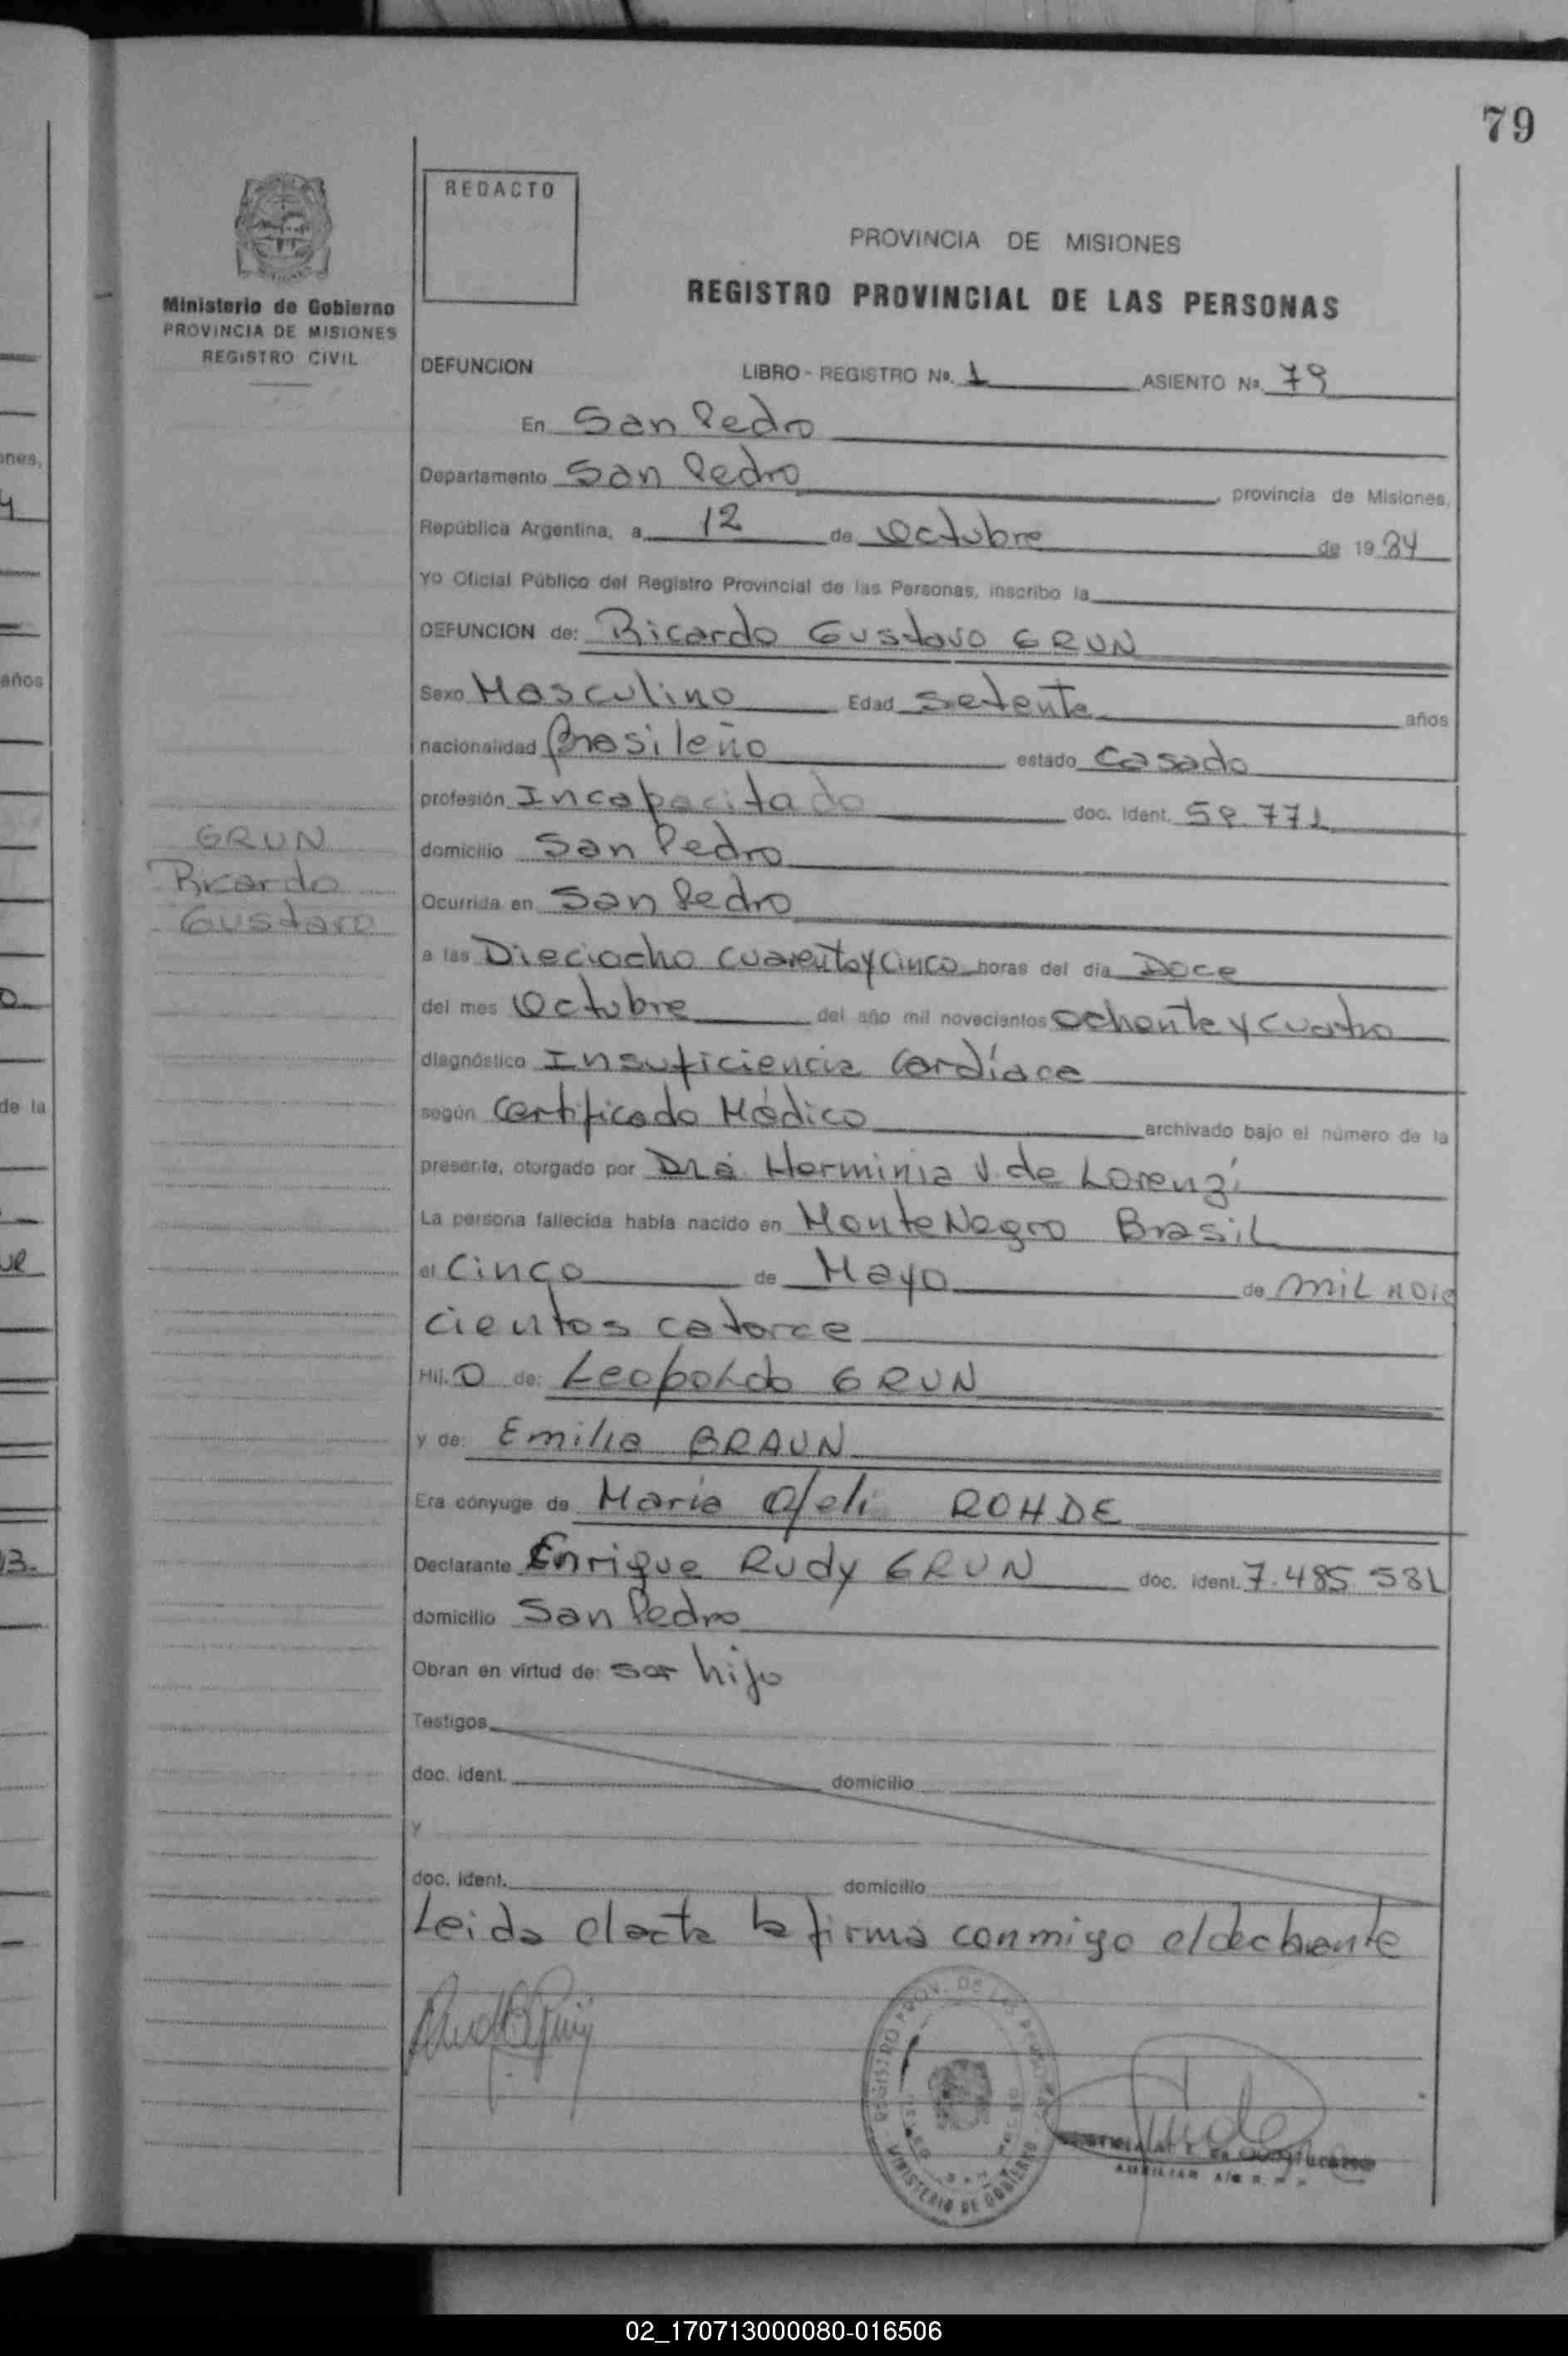 79
REDACTO
PROVINCIA DE MISIONES
REGISTRO PROVINCIAL DE LAS PERSONAS
Ministerio de Gobierno
PROVINCIA DE MISIONES
REGISTRO CIVIL
DEFUNCION LIBRO - REGISTRO Nº. 1 ASIENTO Nº. 79
En San Pedro
Departamento San Pedro, provincia de Misiones,
República Argentina, a 12 de Octubre de 1984
Yo Oficial Público del Registro Provincial de las Personas, inscribo la
DEFUNCION de: Ricardo Gustavo GRUN
Sexo Masculino Edad Setenta años
nacionalidad Brasileño estado Casado
profesión Incapacitado doc. ident. 59.771
GRUN
Ricardo
Gustavo
domicilio San Pedro
Ocurrida en San Pedro
a las Dieciocho cuarenta y cinco horas del día Doce
del mes Octubre del año mil novecientos ochenta y cuatro
diagnóstico Insuficiencia Cardíaca
según Certificado Médico archivado bajo el número de la
presente, otorgado por Dra. Herminia V. de Lorenzi
La persona fallecida había nacido en Monte Negro Brasil
el Cinco de Mayo de mil nove
cientos catorce
Hij.o de: Leopoldo GRUN
y de: Emilia BRAUN
Era cónyuge de María Ofeli ROHDE
Declarante Enrique Rudy GRUN doc. ident. 7.485.531
domicilio San Pedro
Obran en virtud de: ser hijo
Testigos
doc. ident. domicilio
y
doc. ident. domicilio
Leida el acta la firma conmigo el declarante
REGISTRO PROV. DE LAS PERSONAS
MINISTERIO DE GOBIERNO
02_170713000080-016506